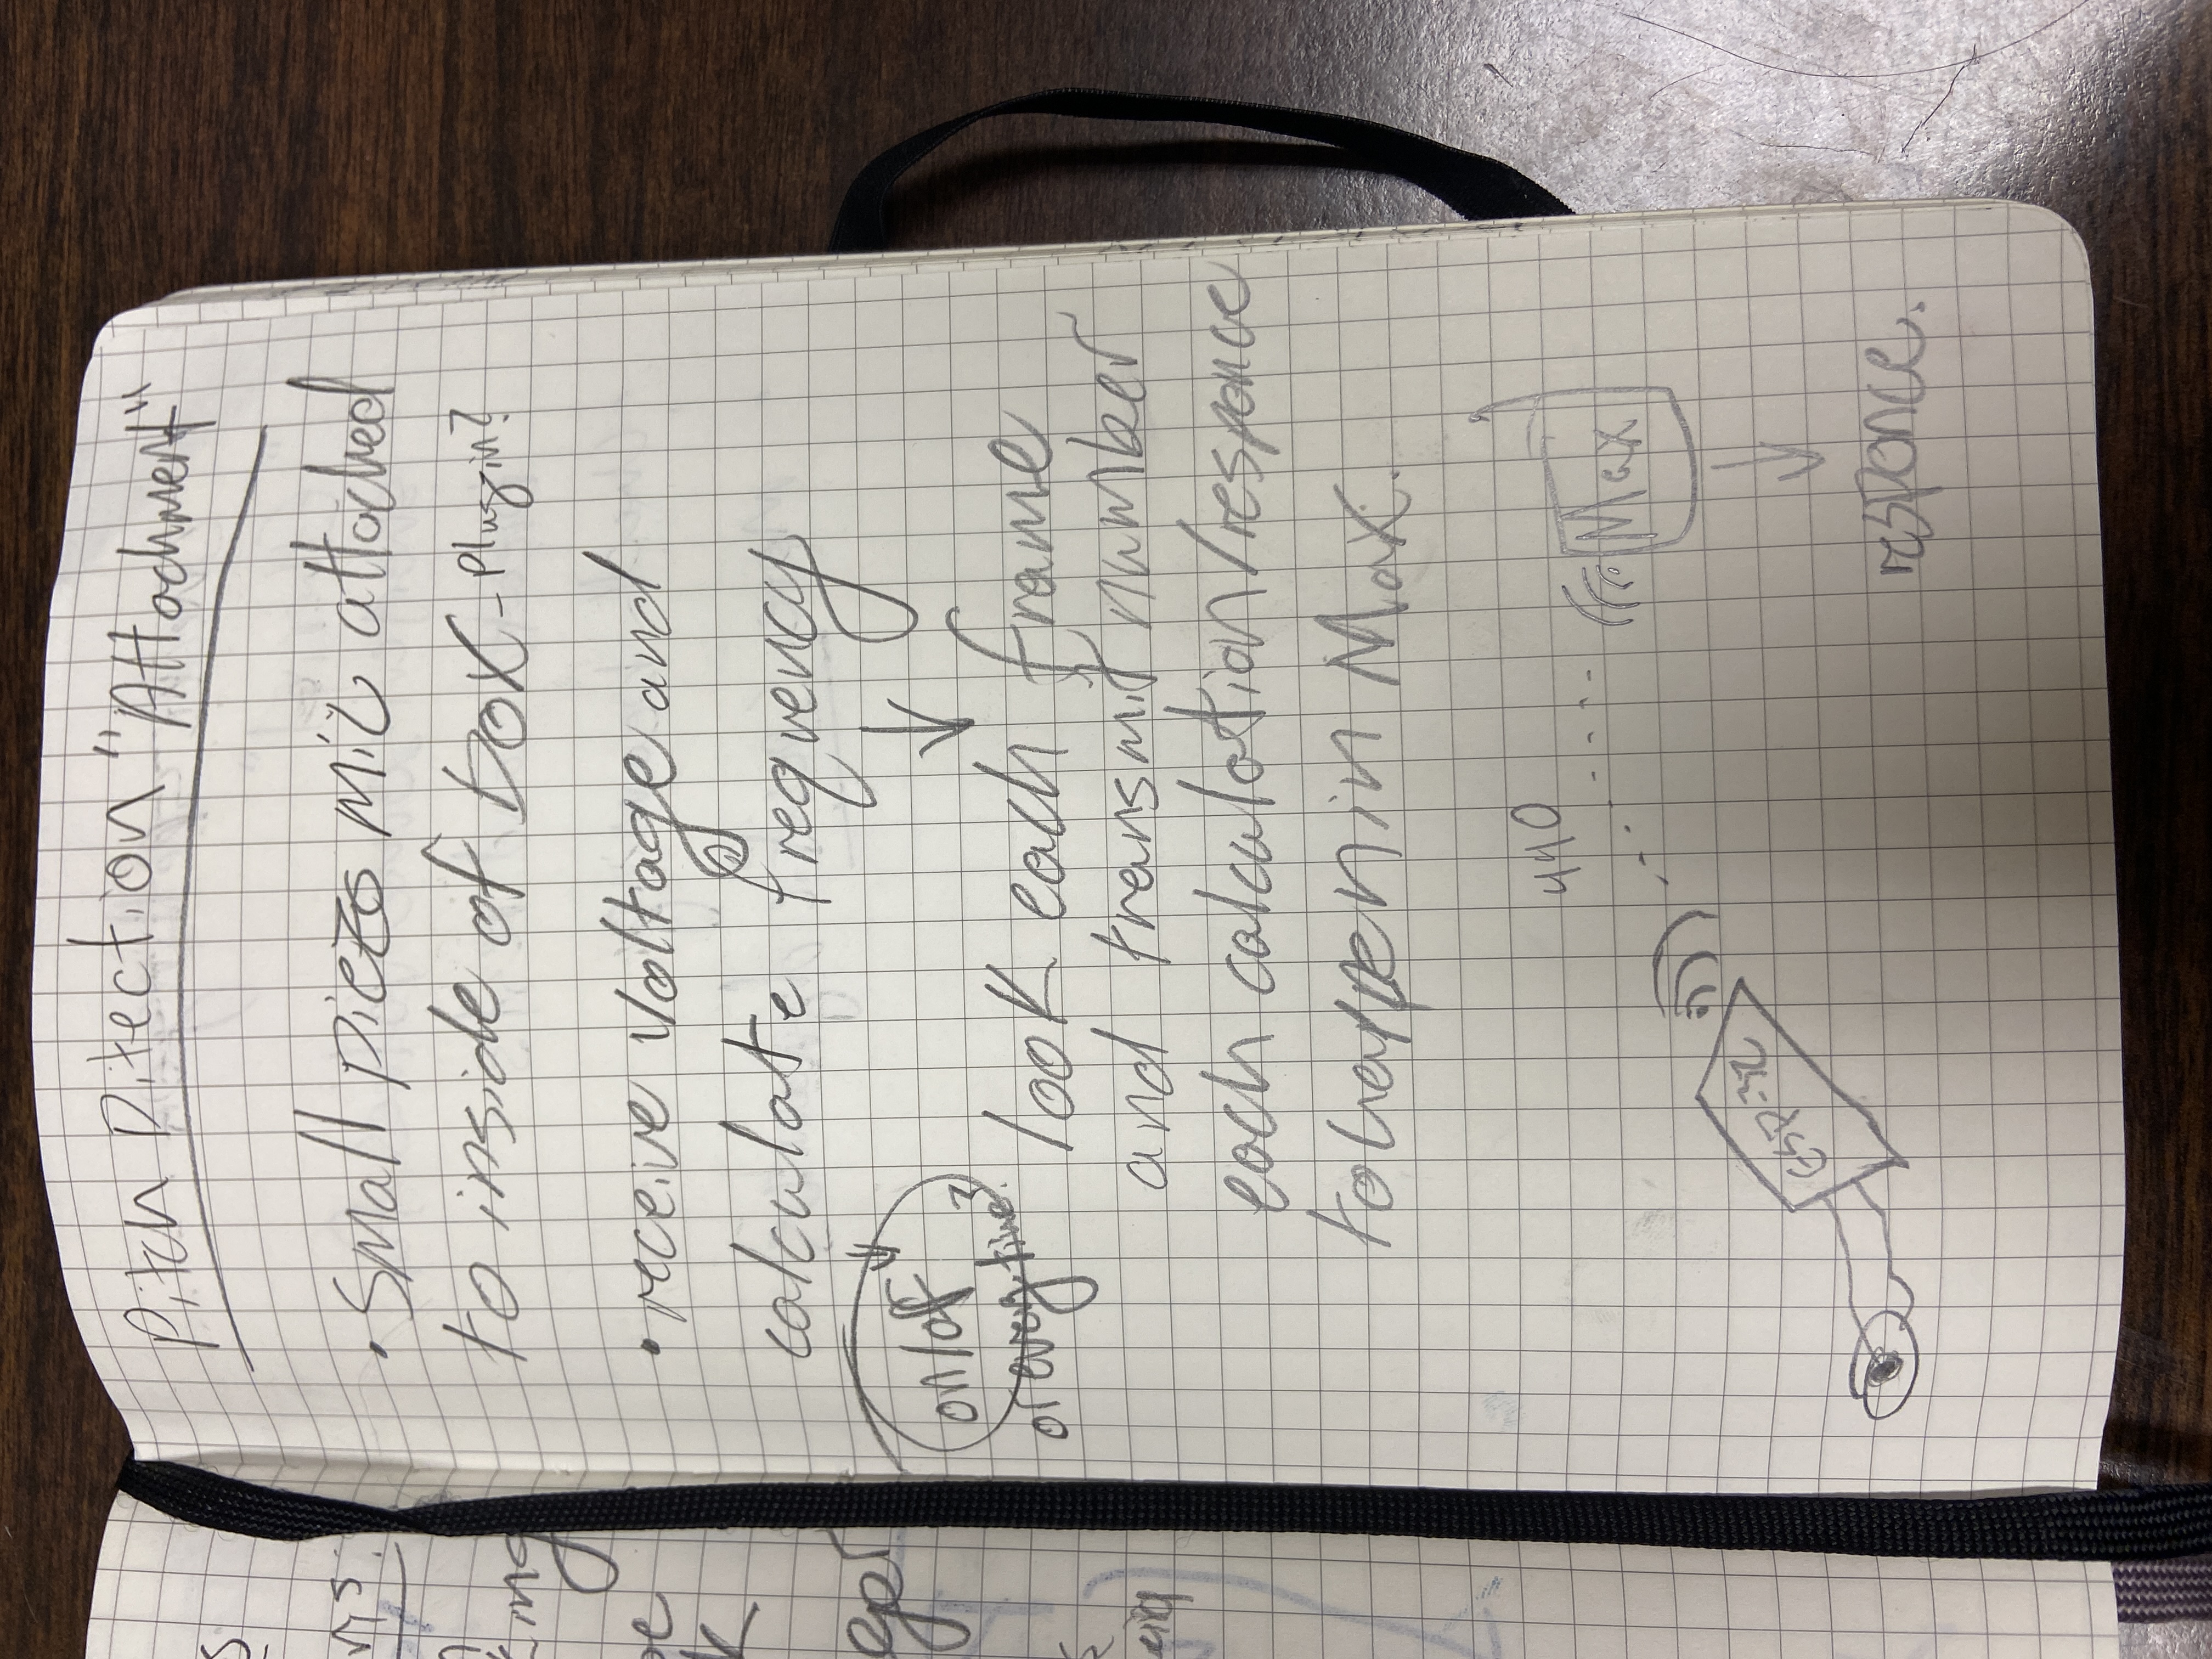 s
ns:
king
k
ger
Pitch Ditection "Attachment"
• Small piezo mic attached
to inside of box - Plug in?
• receive voltage and
calculate frequency
on/of
or every time?
look each frame
and transmit number
each calculation/responce
to happen in Max.
440
Max
ESP-32
responce.